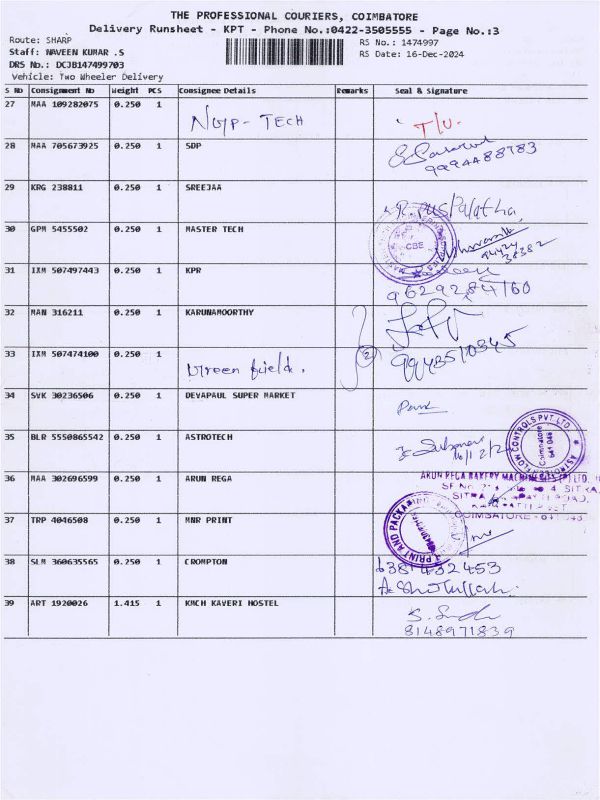 THE PROFESSIONAL COURIERS, COIMBATORE
Delivery Runsheet - KPT - Phone No.:0422-3505555 - Page No.:3
Route: SHARP
RS No.: 1474997
Staff: NAVEEN KUMAR .S
RS Date: 16-Dec-2024
DRS No.: DCJB147499703
Vehicle: Two Wheeler Delivery
S No Consignment No Weight PCS Consignee Details Remarks Seal & Signature
27 MAA 109282075 0.250 1 NGP- TECH T/U.
28 MAA 705673925 0.250 1 SDP
9994488783
29 KRG 238811 0.250 1 SREEJAA
R. puspalatha
30 GPM 5455502 0.250 1 MASTER TECH
CBE
31 IXM 507497443 0.250 1 KPR
9629284160
32 MAN 316211 0.250 1 KARUNAMOORTHY
33 IXM 507474100 0.250 1 Green field. 2 9943510345
34 SVK 30236506 0.250 1 DEVAPAUL SUPER MARKET
35 BLR 5550865542 0.250 1 ASTROTECH
CONTROLS PVT.LTD.
Coimbatore
641 048
36 MAA 302696599 0.250 1 ARUN REGA
ARUN REGA BAKERY
COIMBATORE
37 TRP 4046508 0.250 1 MNR PRINT
PRINT AND
38 SLM 360635565 0.250 1 CROMPTON 6381432453
39 ART 1920026 1.415 1 KMCH KAVERI HOSTEL
8148971839